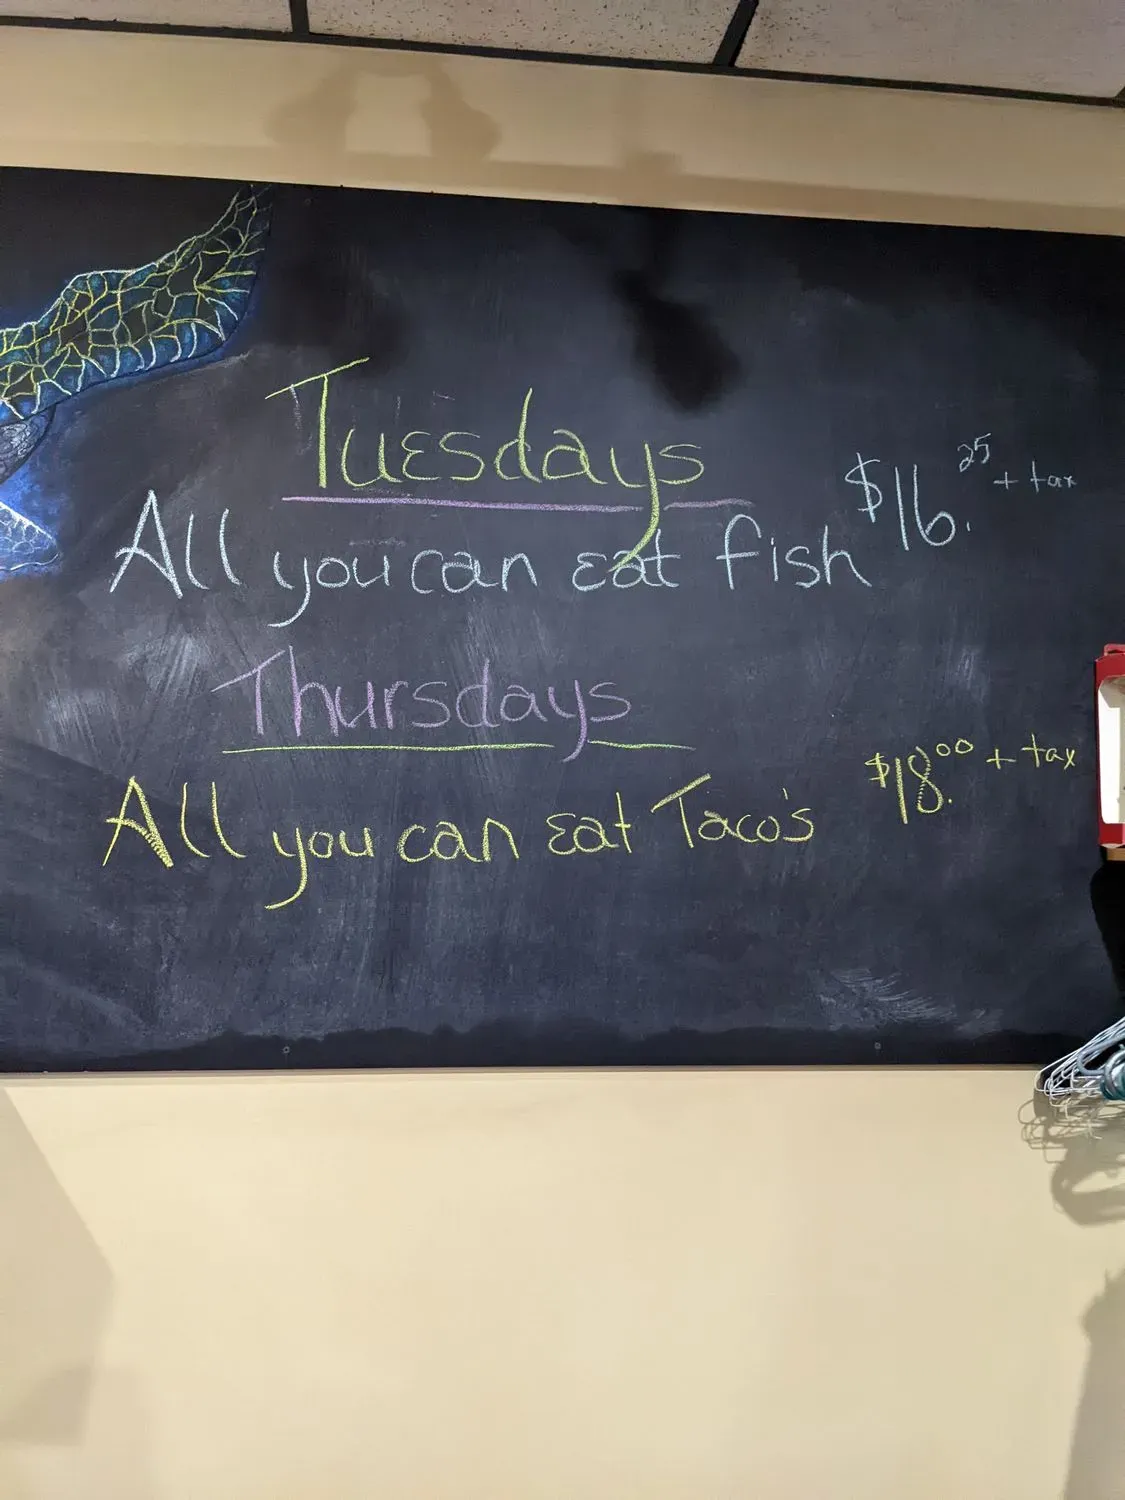 Tuesdays
All you can eat fish $16.25 + tax
Thursdays
All you can eat Taco's $18.00 + tax